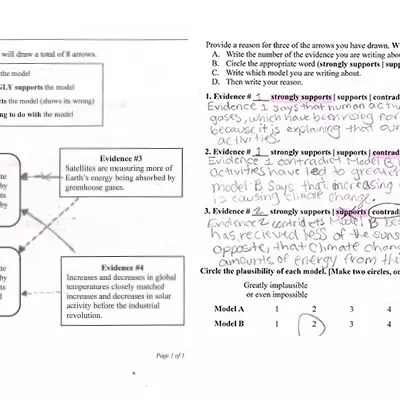 will draw a total of 8 arrows.
the model
GLY supports the model
cts the model (shows its wrong)
ng to do with the model
Evidence #3
Satellites are measuring more of
Earth's energy being absorbed by
greenhouse gases.
ate
by
ts
by
ate
by
ts
Evidence #4
Increases and decreases in global
temperatures closely matched
increases and decreases in solar
activity before the industrial
revolution.
Page 1 of 1
Provide a reason for three of the arrows you have drawn. W
A. Write the number of the evidence you are writing about.
B. Circle the appropriate word (strongly supports | suppor
C. Write which model you are writing about.
D. Then write your reason.
1. Evidence # 1 strongly supports | supports | contrad
Evidence 1 says that human activ
gases, which have been rising for
because it is explaining that our
activities.
2. Evidence # 1 strongly supports | supports | contrad
Evidence 1 contradict Model B,
activities have led to great
model B says that increasing
is causing climate change.
3. Evidence # 2 strongly supports | supports | contradi
Evidence 2 contridicts Model B be
has recieved less of the suns
opposite, that climate chang
amounts of energy from the
Circle the plausibility of each model. [Make two circles, on
Greatly implausible
or even impossible
Model A 1 2 3 4
Model B 1 2 3 4